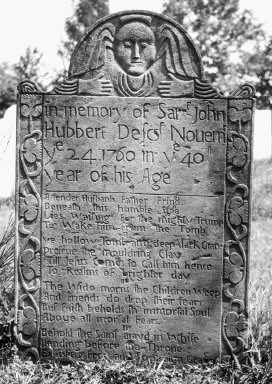 In memory of Sarᵗ John
Hubbert Descsᵗ Novem
yᵉ 24. 1760 in yᵉ 40
year of his Age
A tender Husband Father Frind
Beneath this humble
Lies Waiting for the mighty Trump
To Wake him from the Tomb
ye hollow Tomb and deep dark Grave
the mouldring Clay
Come to Call him hence
To Realms of brighter day
The Wido morns the Children Weep
and friends do drop their fears
But faith beholds the immortal Soul
Above all mortal Fears
Behold the Saint arayd in White
before the Throne